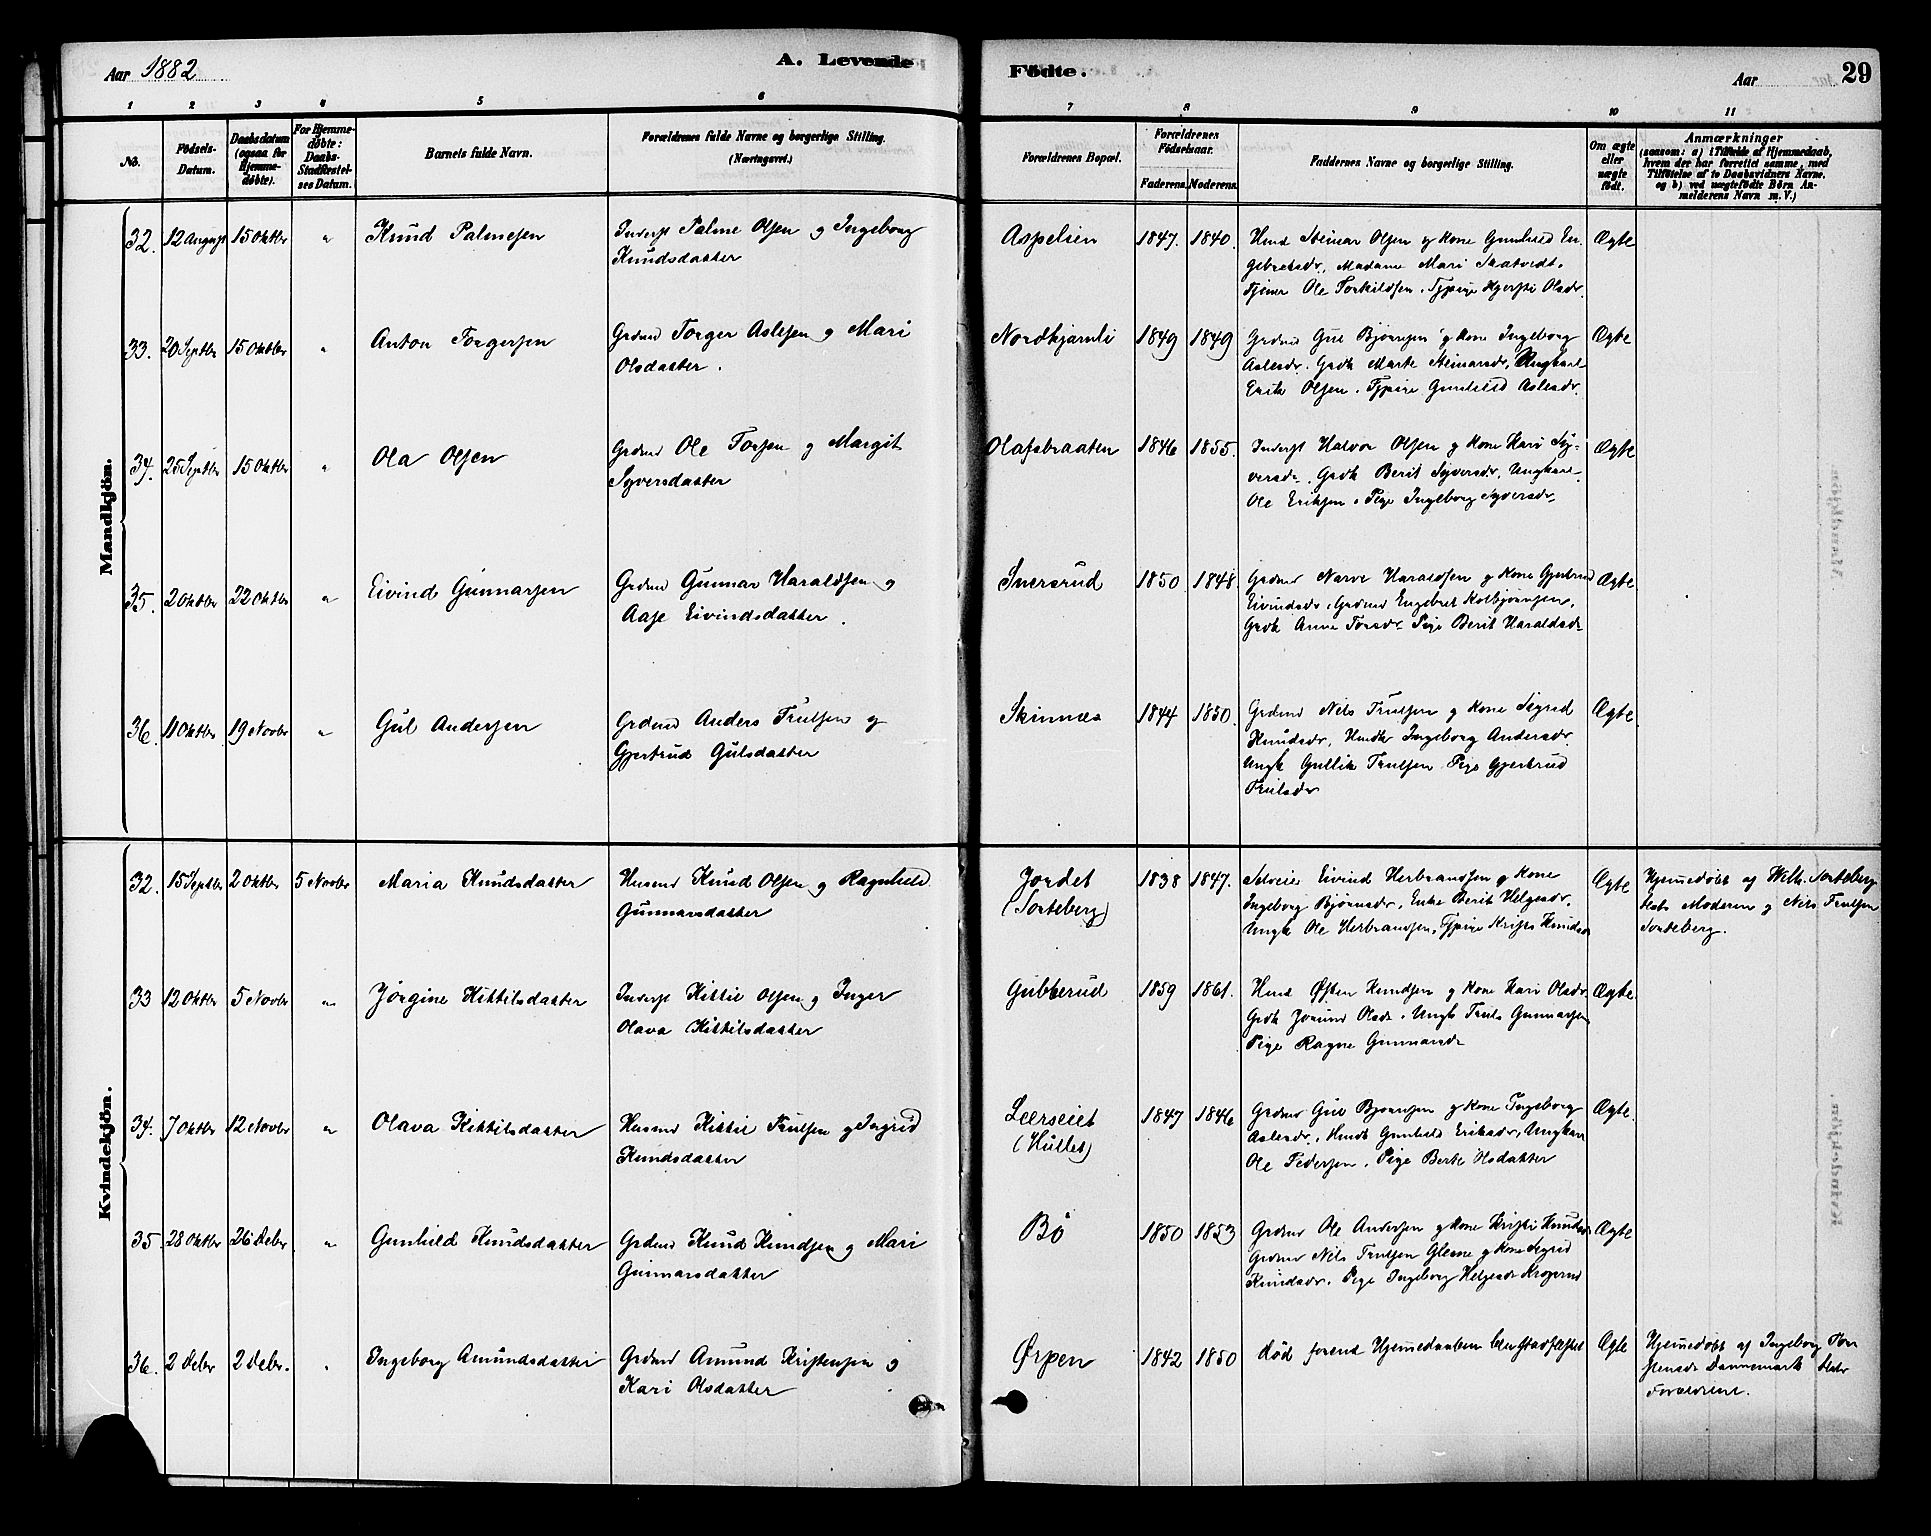 Aar 1882
A. Levende
Födte.
Aar
29
1 2 3 4 5 6 7 8 9 10 11
No.
Födsels-
Datum.
Daabsdatum
(ogsaa for
Hjemme-
døbte).
For Hjemme-
døbte:
Daabs-
Stadfæstel-
ses Datum.
Barnets fulde Navn.
Forældrenes fulde Navne og borgerlige Stilling.
(Næringsvei.)
Forældrenes Bopæl.
Forældrenes
Födselsaar.
Faderens. Moderens.
Faddernes Navne og borgerlige Stilling.
Om ægte
eller
uægte
født.
Anmærkninger
(saasom: a) i Tilfælde af Hjemmedaab,
hvem der har forrettet samme, med
Tilføielse af to Daabsvidners Navne,
og b) ved uægtefødte Börn An-
melderens Navn m. V.)
Mandkjön.
32. 12 August 15 Oktbr " Knud Palmesen
Inderst Palme Olsen og Ingeborg
Knudsdatter
Aspelien 1847. 1840.
Husm Steinar Olsen og Kone Gunhild En-
gebretsdr, Madame Mari Skatvedt,
Tjener Ole Torkildsen, Tjpige Kjersti Olsdr.
Ægte
33. 20 Septbr 15 Oktbr " Anton Torgersen
Grdmd Torger Aslesen og Mari
Olsdatter.
Nordkjærnli 1849 1849
Grdmd Gul Bjørnsen og Kone Ingeborg
Aslesdr. Grdk Marte Steinarsdr, Ungkarl
Erik Olsen. Tjpige Gunhild Aslesdr.
Ægte
34. 25 Septbr 15 Oktbr " Ola Olsen
Grdmd Ole Torsen og Margit
Syversdatter
Olafsbraaten 1846 1855.
Inderst Halvor Olsen og Kone Kari Sy-
versdr. Grdk Berit Syversdr, Ungkarl
Ole Eriksen, Pige Ingeborg Syversdr.
Ægte
35. 2 Oktbr 22 Oktbr " Eivind Gunnarsen
Grdmd Gunnar Haraldsen og
Aase Eivindsdatter.
Snersrud 1850 1848
Grdmd Narve Haraldsen og Kone Gjertrud
Eivindsdr, Grdmd Engebret Kolbjørnsen,
Grdk Anne Torsdr. Pige Berit Haraldsdr
Ægte
36. 11 Oktbr 19 Novbr " Gul Andersen
Grdmd Anders Trulsen og
Gjertrud Gulsdatter
Skinnes 1844 1850.
Grdmd Nils Trulsen og Kone Sigrid
Knudsdr, Husmk Ingeborg Andersdr.
Ungk Gullik Trulsen Pige Gjertrud
Trulsdr
Ægte.
Kvindekjön.
32. 15 Septbr 2 Oktbr 5 Novbr Maria Knudsdatter
Husmd Knud Olsen og Ragnhild
Gunnarsdatter
Jordet
(Sorteberg)
1838 1847.
Selveier Eivind Herbrandsen og Kone
Ingeborg Bjørnsdr, Enke Berit Helgesdr,
Ungk Ole Herbrandsen, Tjpige Kristi Knudsdr
Ægte
Hjemmedøbt af Wilh. Sorteberg
Moderen og Nils Trulsen
Sorteberg.
33 12 Oktbr 5 Novbr " Jörgine Kittilsdatter
Inderst Kittil Olsen og Inger
Olava Kittilsdatter
Gubberud 1859 1861.
Husm Østen Knudsen og Kone Kari Olsdr.
Grdk Jorund Olsdr. Ungk Truls Gunnarsen
Pige Ragne Gunnarsdr
Ægte.
34. 7 Oktbr 12 Novbr " Olava Kittilsdatter
Husmd Kittil Trulsen og Ingrid
Knudsdatter
Leerseiet
(Hullet)
1847 1846
Grdmd Gul Bjørnsen og Kone Ingeborg
Aslesdr, Husmk Gunhild Eriksdr, Ungkarl
Ole Pedersen, Pige Berte Olsdatter
Ægte.
35. 28 Oktbr 26 Debr " Gunhild Knudsdatter
Grdmd Knud Knudsen og Mari
Gunnarsdatter
Bö 1850 1853
Grdmd Ole Andersen og Kone Kristi Knudsdr
Grdmd Nils Trulsen Glesne og Kone Sigrid
Knudsdr. Pige Ingeborg Helgesdr Kroperud
Ægte
36. 2 Debr 2 Debr. " Ingeborg Amundsdatter
Grdmd Amund Kristensen og
Kari Olsdatter
Ørpen 1842 1850
død forend Hjemmedaaben blev stadfæstet
Ægte
Hjemmedøbt af Ingeborg Tor-
stensdr Dannemark
Forældrene.